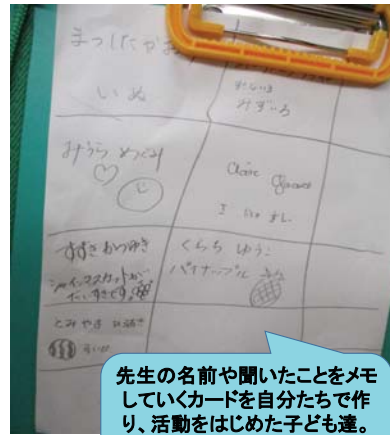 まつした
いぬ
みずいろ
みうら めぐみ
すずき かつゆき
シャインマスカットが
だいすきです。
くらち ゆう
パイナップル
とみやま
すいか
先生の名前や聞いたことをメモ
していくカードを自分たちで作
り、活動をはじめた子ども達。